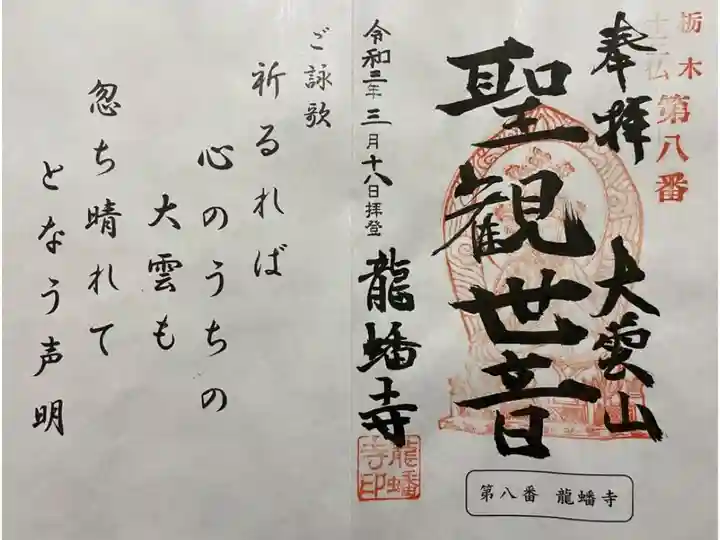 栃木
十三仏
第八番
奉拝
大雲山
聖観世音
龍蟠寺
令和三年三月十八日拝登
龍蟠寺印
第八番 龍蟠寺
ご詠歌
祈るれば
心のうちの
大雲も
忽ち晴れて
となう声明